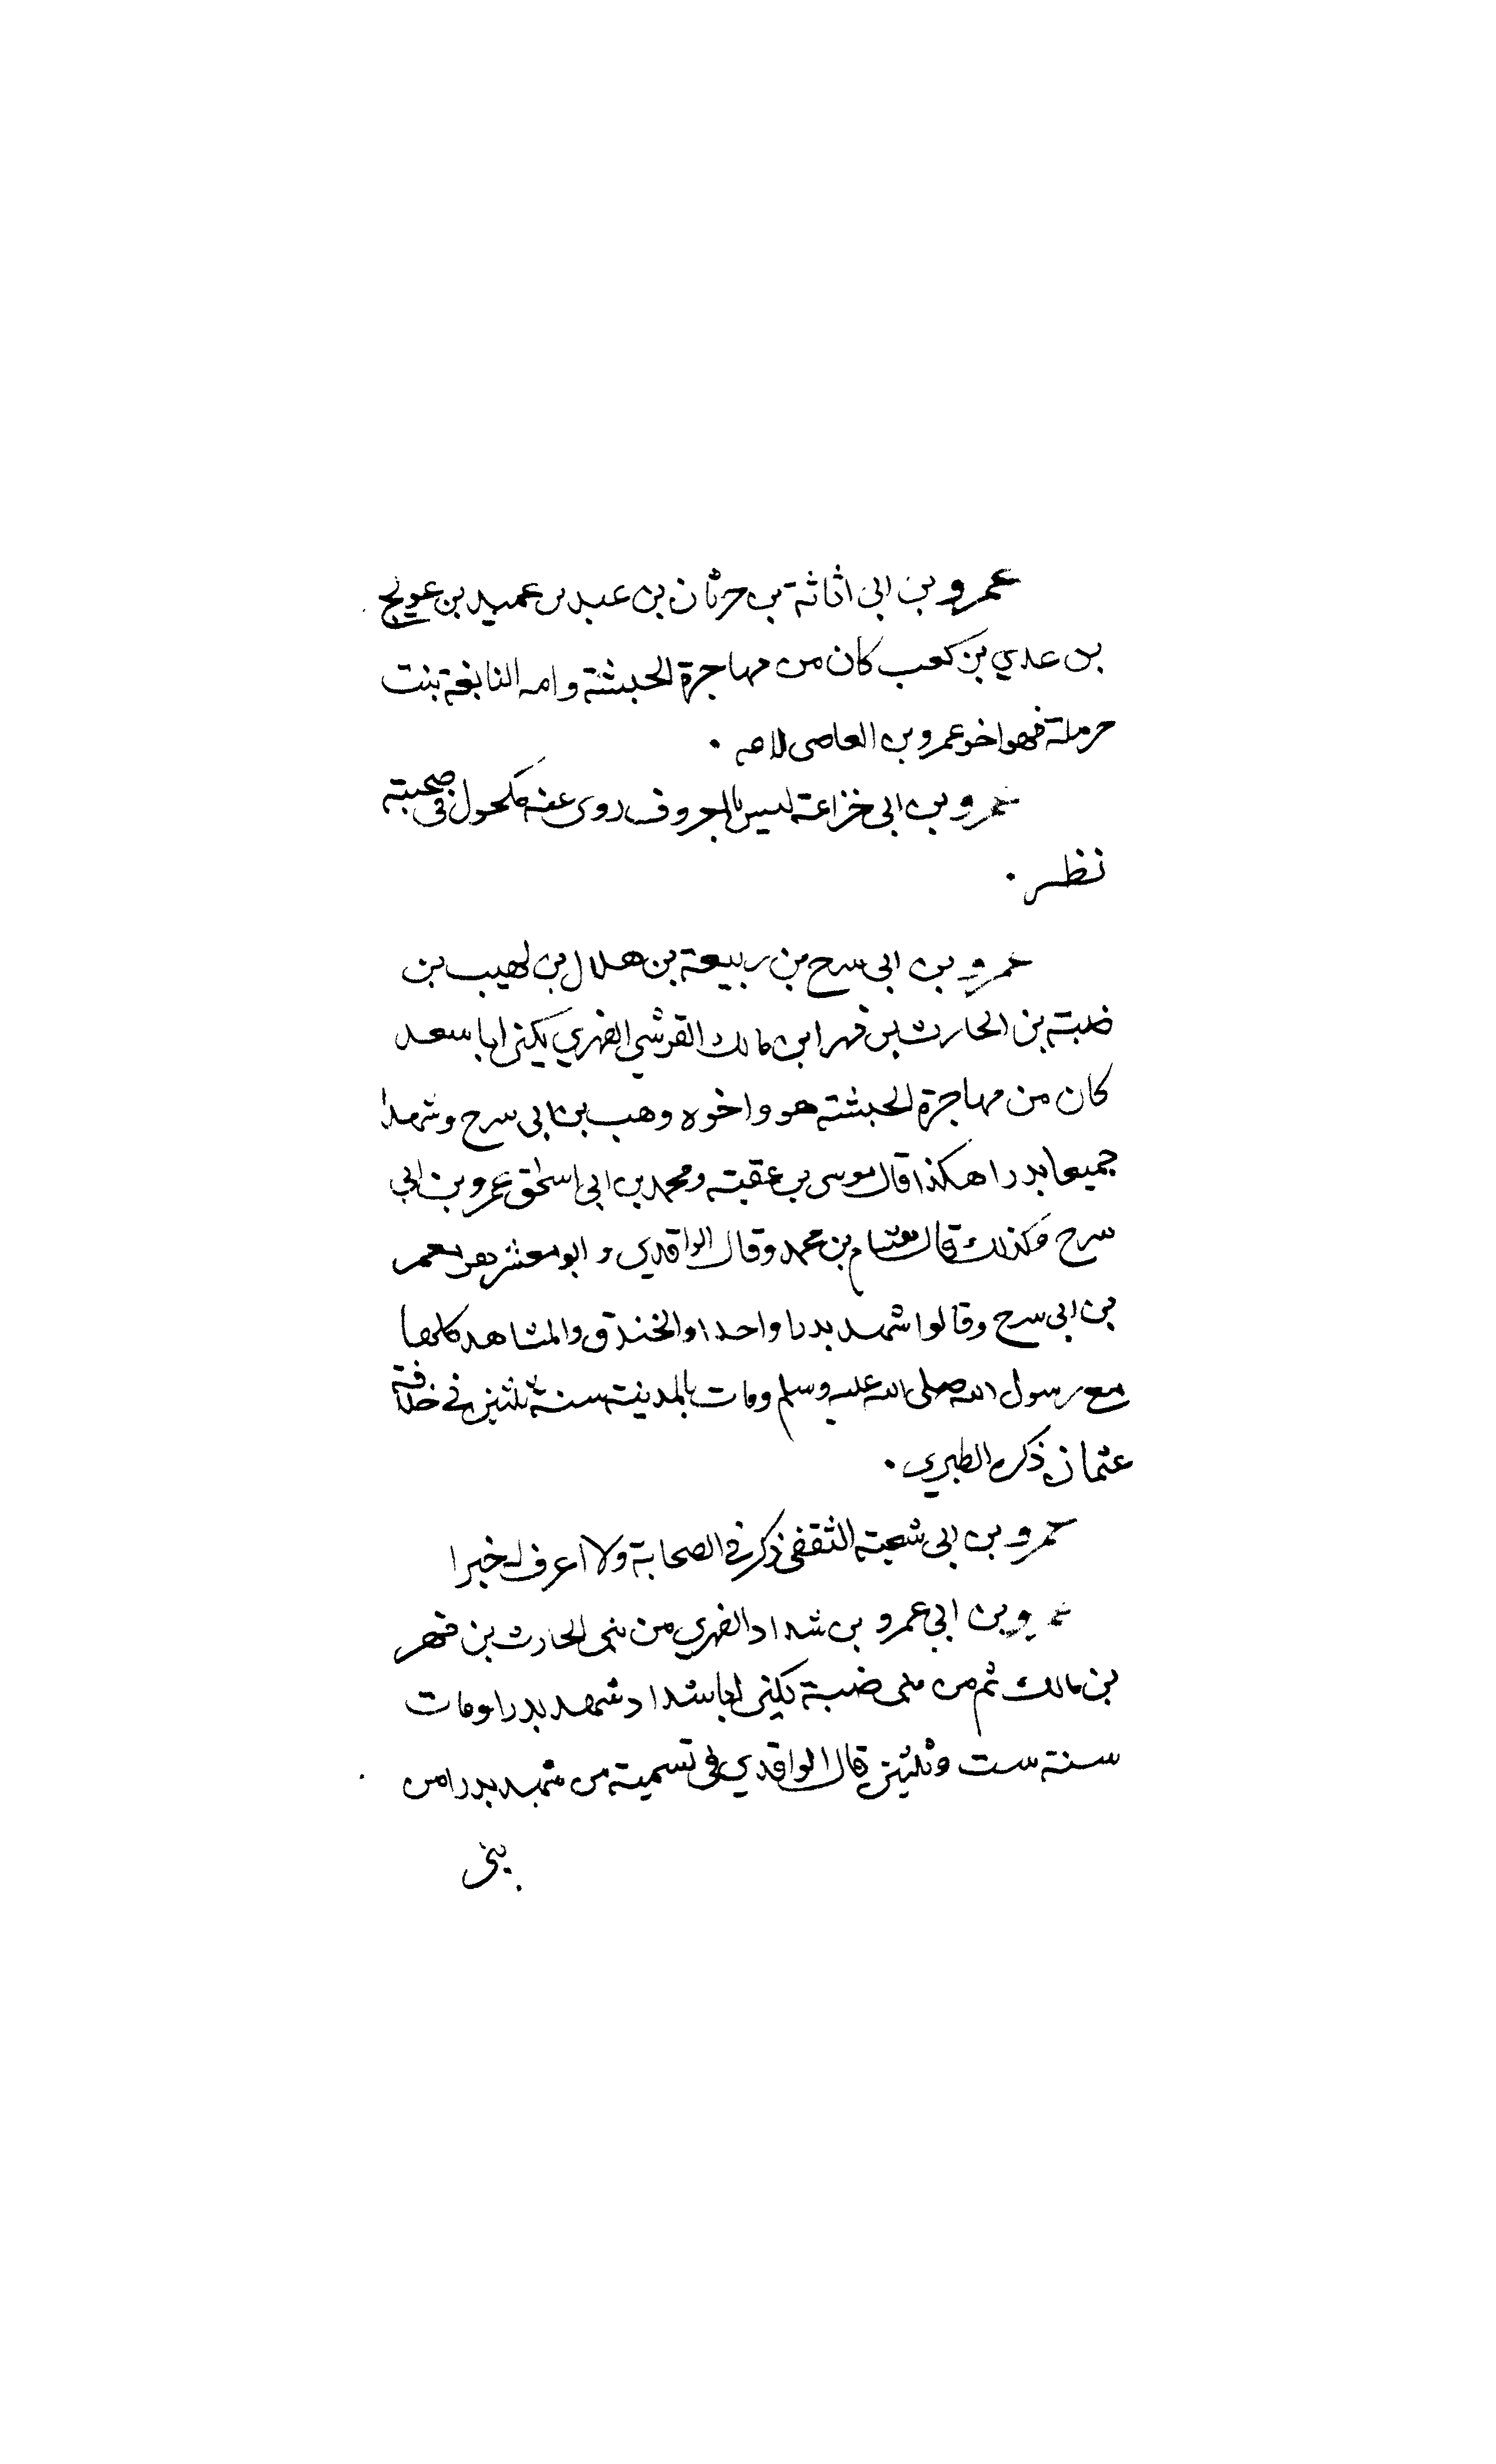 عمرو بن ابى اثاثة بن حرثان بن عبد بن عميد بن عويج
بن عدي بن كعب كان من مهاجرة الحبشة وامه النابغة بنت
حرملة فهو اخو عمرو بن العاصى لامه .
عمرو بن ابى خزاعة ليس بالمعروف روى عنه مكحول فى صحبته
نظر .
عمرو بن ابى سرح بن ربيعة بن هلال بن لهيب بن
ضبة بن الحارث بن فهر ابن مالك القرشي الفهري يكنى ابا سعد
كان من مهاجرة الحبشة هو واخوه وهب بن ابى سرح وشهدا
جميعا بدرا هكذا قال موسى بن عقبة ومحمد بن ابى اسحق عمرو بن ابي
سرح وكذلك قال هشام بن محمد وقال الواقدي و ابو معشر هو معمر
بن ابى سرح وقالوا شهد بدرا واحدا والخندق والمشاهد كلها
مع رسول الله صلى الله عليه وسلم ومات بالمدينة سنة ثلثين في خلافة
عثمان ذكره الطبري .
عمرو بن ابى شعبة الثقفى ذكر في الصحابة ولا اعرف له خبرا
عمرو بن ابي عمرو بن شداد الفهري من بنى الحارث بن فهر
بن مالك ثم من بنى ضبة يكنى ابا شداد شهد بدرا ومات
سنة ست وثلثين قال الواقدي فى تسمية من شهد بدرا من
بنى